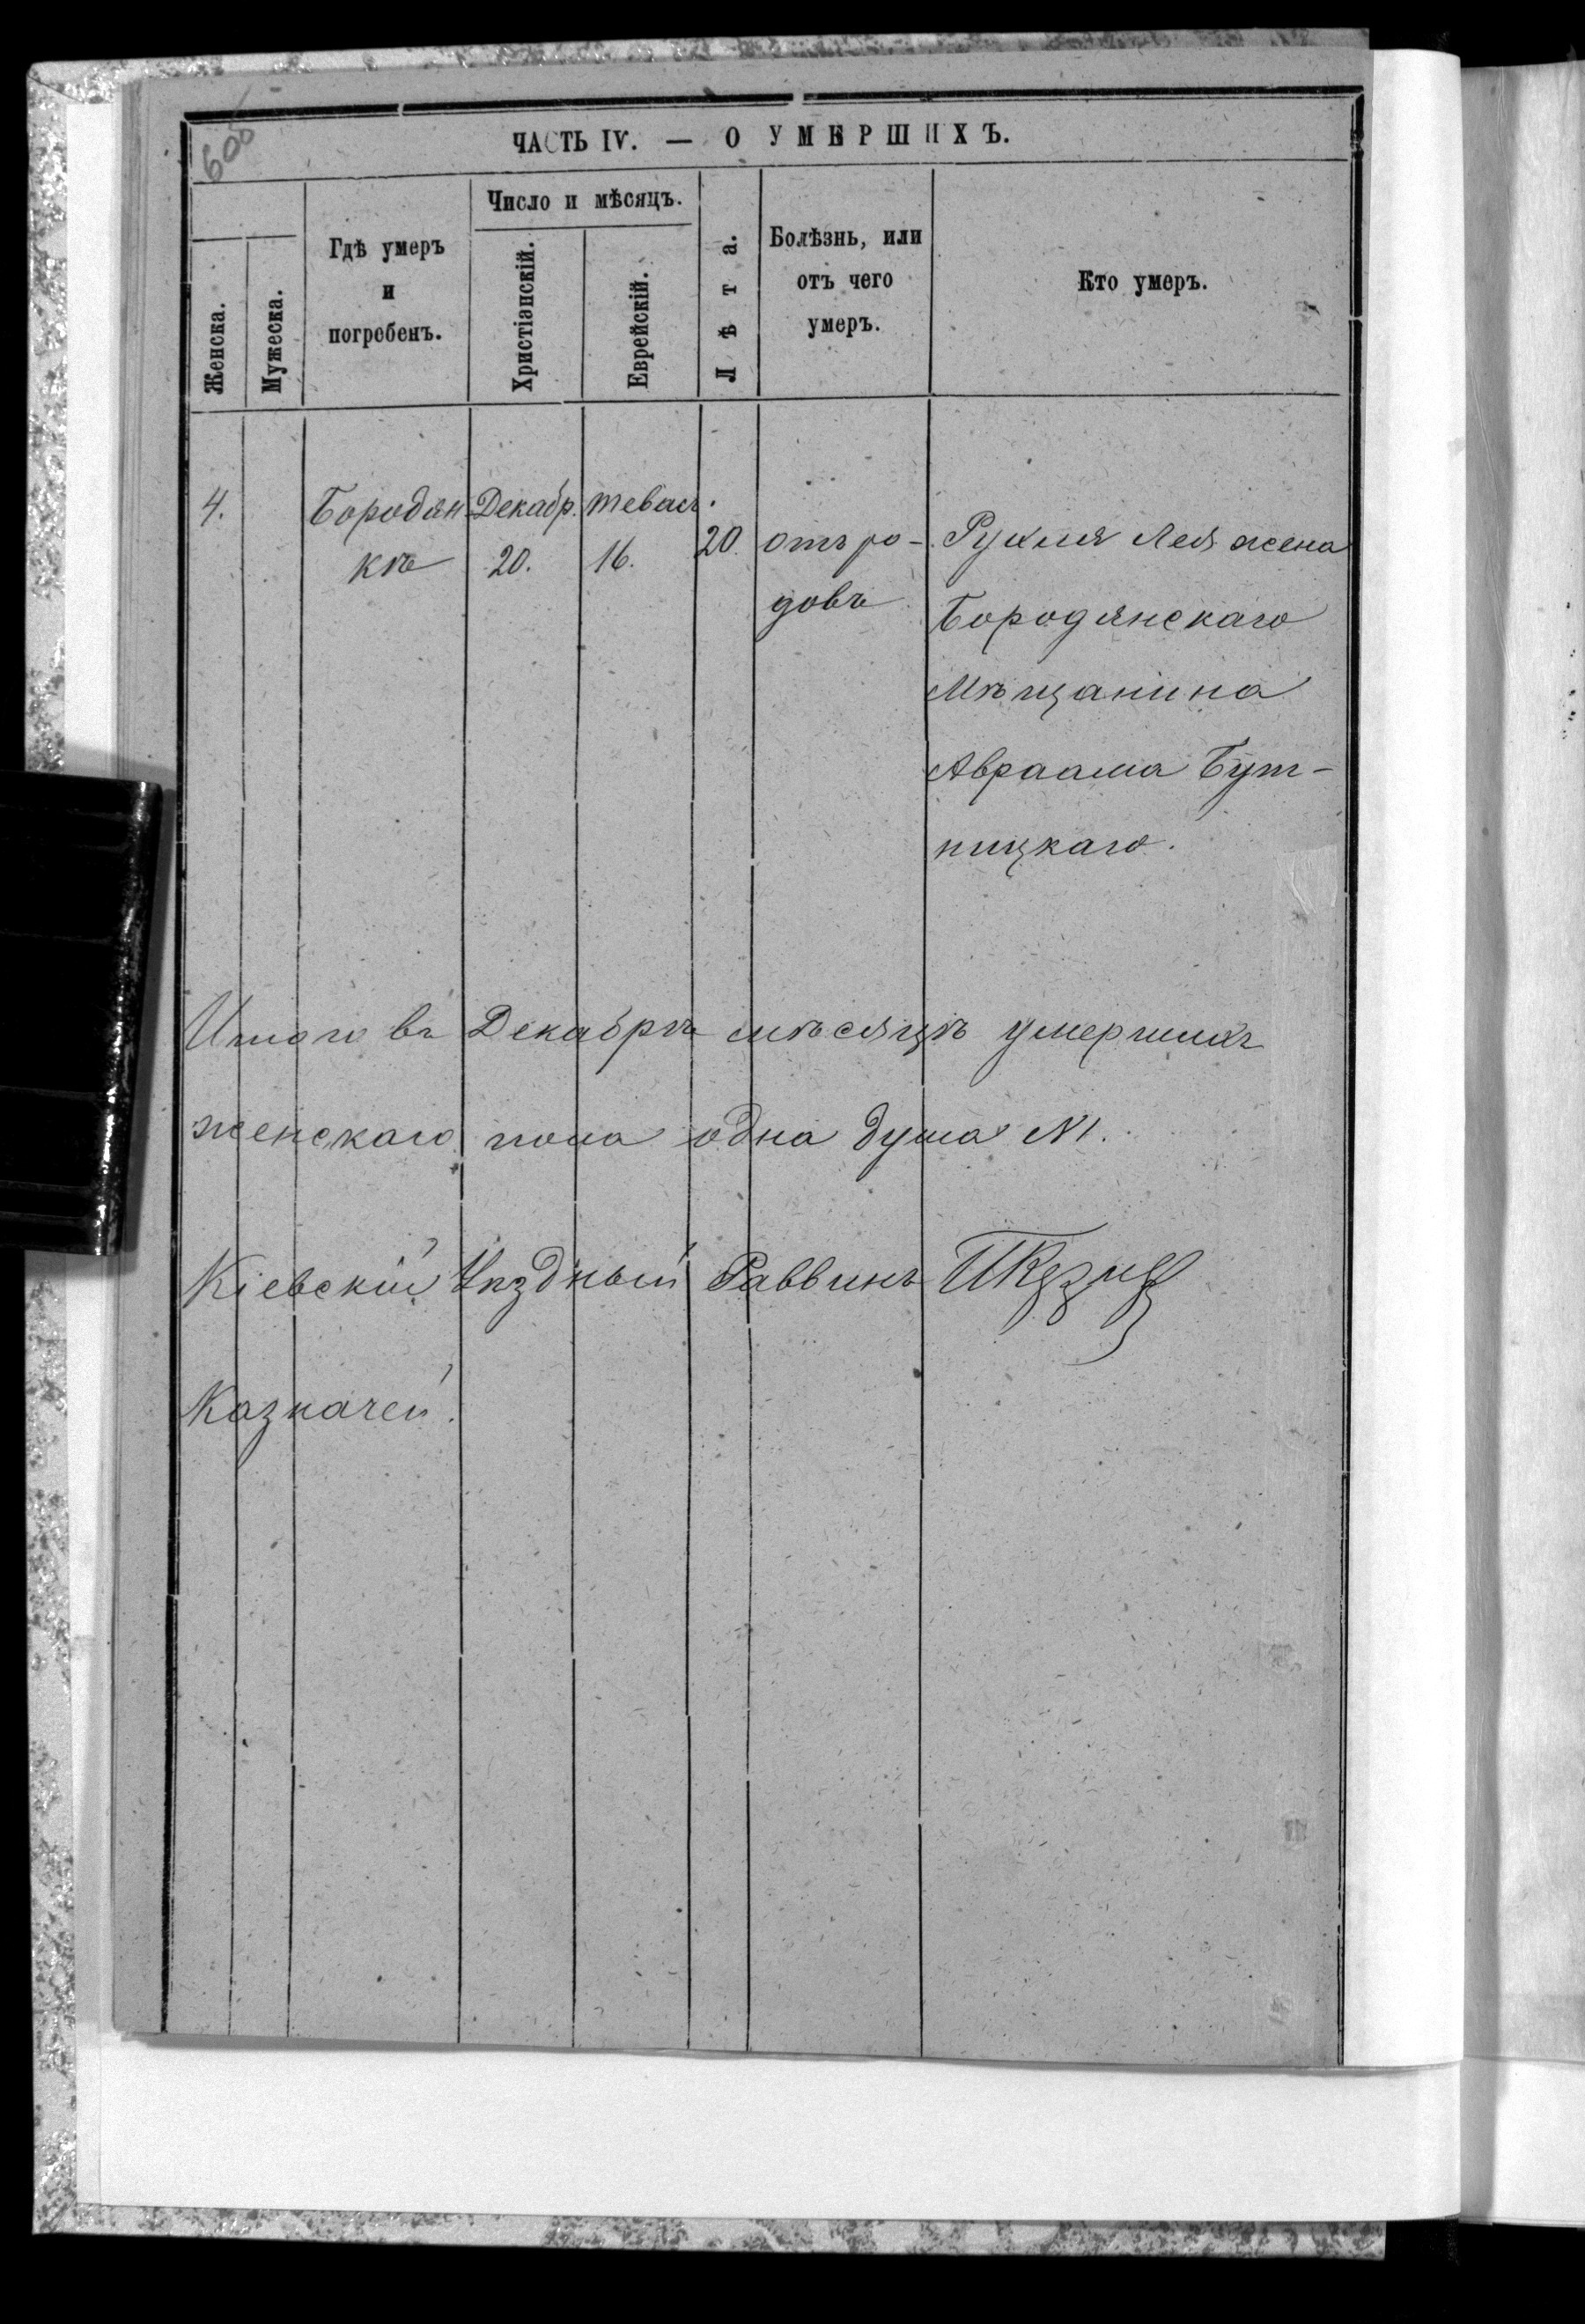 606
ЧАСТЬ IV. — О УМЕРШИХЪ.
Женска.
Мужеска.
Гдѣ умеръ
и
погребенъ.
Число и мѣсяцъ.
Христіанскій.
Еврейскій.
Лѣта.
Болѣзнь, или
отъ чего
умеръ.
Кто умеръ.
4.
Бородян-
кѣ
Декабр.
20.
16.
20.
отъ ро-
довъ
Рухля Лея жена
Бородянскаго
Мѣщанина
Авраама Бут-
ницкаго.
Итого въ Декабрѣ мѣсяцѣ умершихъ
женскаго пола одна душа №1.
Кіевскій Уѣздный Раввинъ
Казначей.